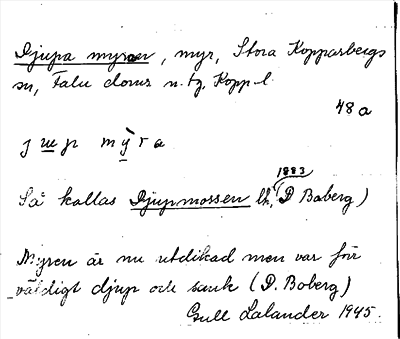 Djupa myren, myr, Stora Kopparbergs
sn, Falu domss n. tg, Kopp. l.
48 a
jup mýra
Så kallas Djupmossen
1883
(D Boberg)
Myren är nu utdikad men var för
väldigt djup och sank (D. Boberg)
Gull Lalander 1945.